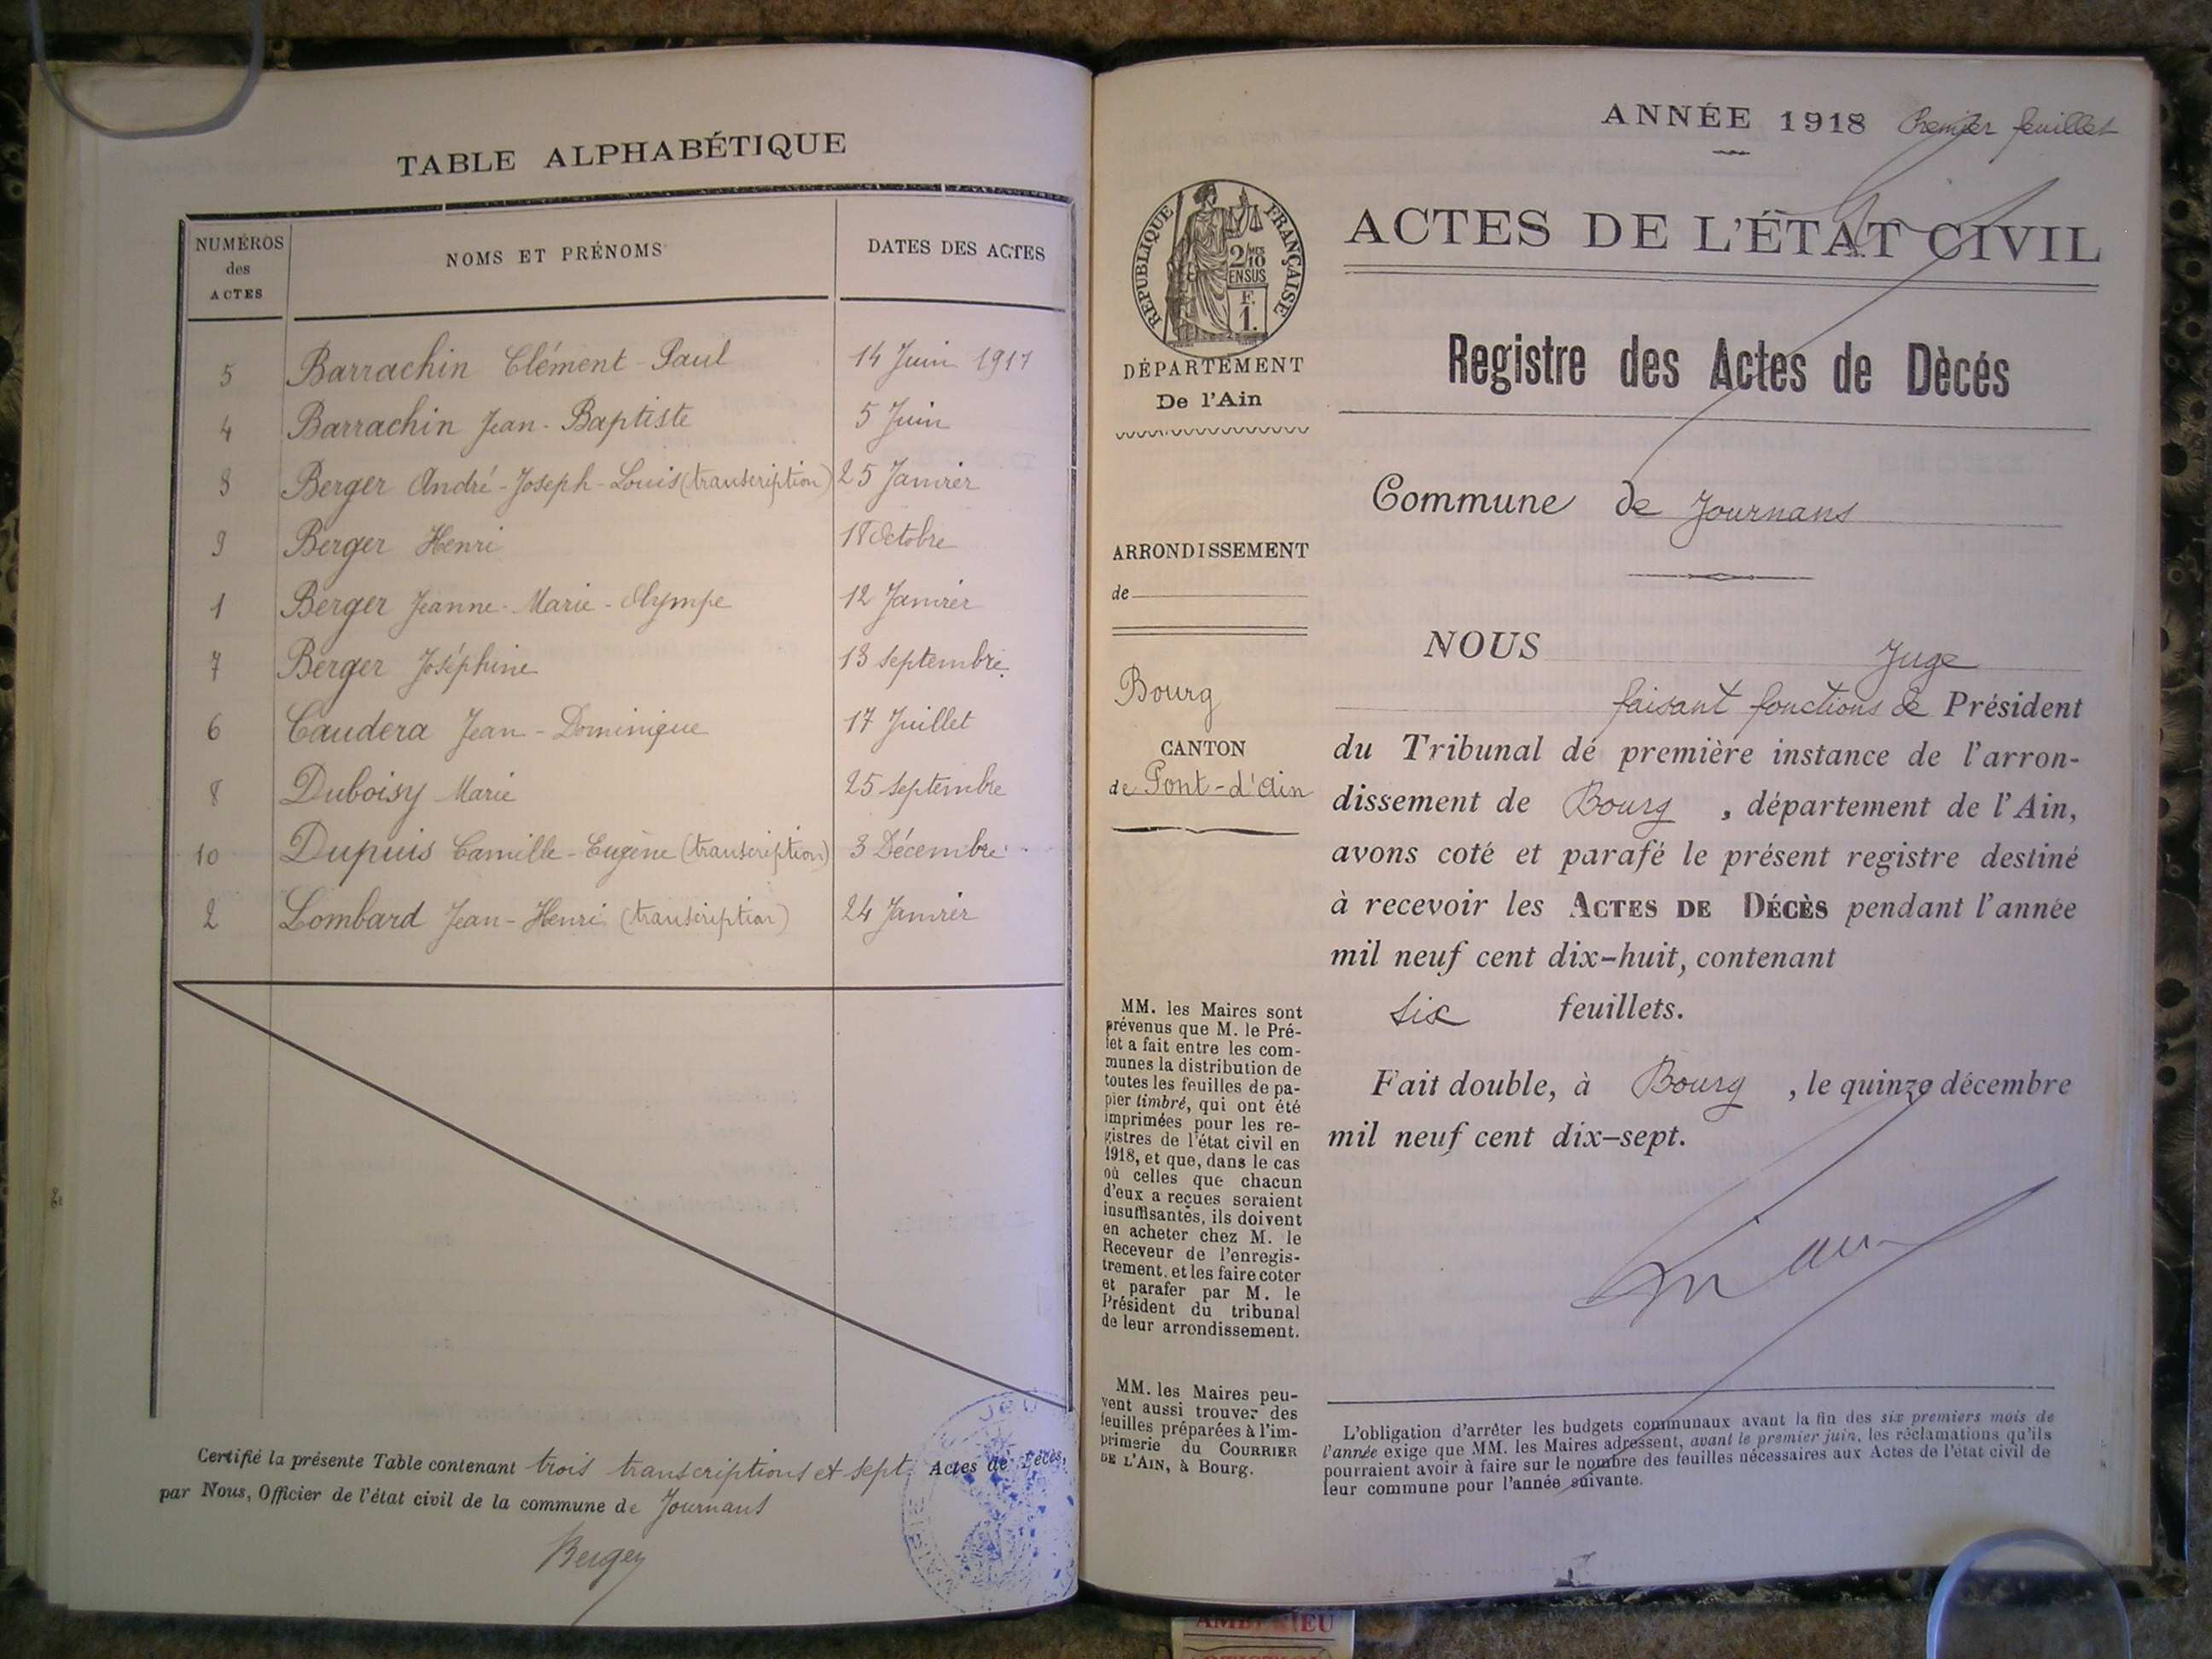 TABLE ALPHABÉTIQUE
NUMÉROS des ACTES NOMS ET PRÉNOMS DATES DES ACTES
5 Barrachin Clément-Paul 14 Juin 1917
4 Barrachin Jean-Baptiste 5 Juin
3 Berger André-Joseph-Louis (transcription) 25 Janvier
9 Berger Henri 18 Octobre
1 Berger Jeanne-Marie-Olympe 12 Janvier
7 Berger Joséphine 13 septembre.
6 Caudera Jean-Dominique 17 Juillet
8 Duboisy Marie 25 septembre
10 Dupuis Camille-Eugène (transcription) 3 Décembre
2 Lombard Jean-Henri (transcription) 24 Janvier
Certifié la présente Table contenant trois transcriptions et sept Actes de Décès,
par Nous, Officier de l'état civil de la commune de Journans
Berger
ANNÉE 1918 Premier feuillet
RÉPUBLIQUE FRANÇAISE
2/10 MES
EN SUS
F.
1.
DÉPARTEMENT
De l'Ain
ARRONDISSEMENT
de
Bourg
CANTON
de Pont-d'Ain
MM. les Maires sont
prévenus que M. le Pré-
fet a fait entre les com-
munes la distribution de
toutes les feuilles de pa-
pier timbré, qui ont été
imprimées pour les re-
gistres de l'état civil en
1918, et que, dans le cas
où celles que chacun
d'eux a reçues seraient
insuffisantes, ils doivent
en acheter chez M. le
Receveur de l'enregis-
trement, et les faire coter
et parafer par M. le
Président du tribunal
de leur arrondissement.
MM. les Maires peu-
vent aussi trouver des
feuilles préparées à l'im-
primerie du COURRIER
DE L'AIN, à Bourg.
ACTES DE L'ÉTAT CIVIL
Registre des Actes de Dècés
Commune de Journans
NOUS Juge
faisant fonctions de Président
du Tribunal de première instance de l'arron-
dissement de Bourg , département de l'Ain,
avons coté et parafé le présent registre destiné
à recevoir les ACTES DE DÉCÈS pendant l'année
mil neuf cent dix-huit, contenant
six feuillets.
Fait double, à Bourg , le quinze décembre
mil neuf cent dix-sept.
L'obligation d'arrêter les budgets communaux avant la fin des six premiers mois de
l'année exige que MM. les Maires adressent, avant le premier juin, les réclamations qu'ils
pourraient avoir à faire sur le nombre des feuilles nécessaires aux Actes de l'état civil de
leur commune pour l'année suivante.